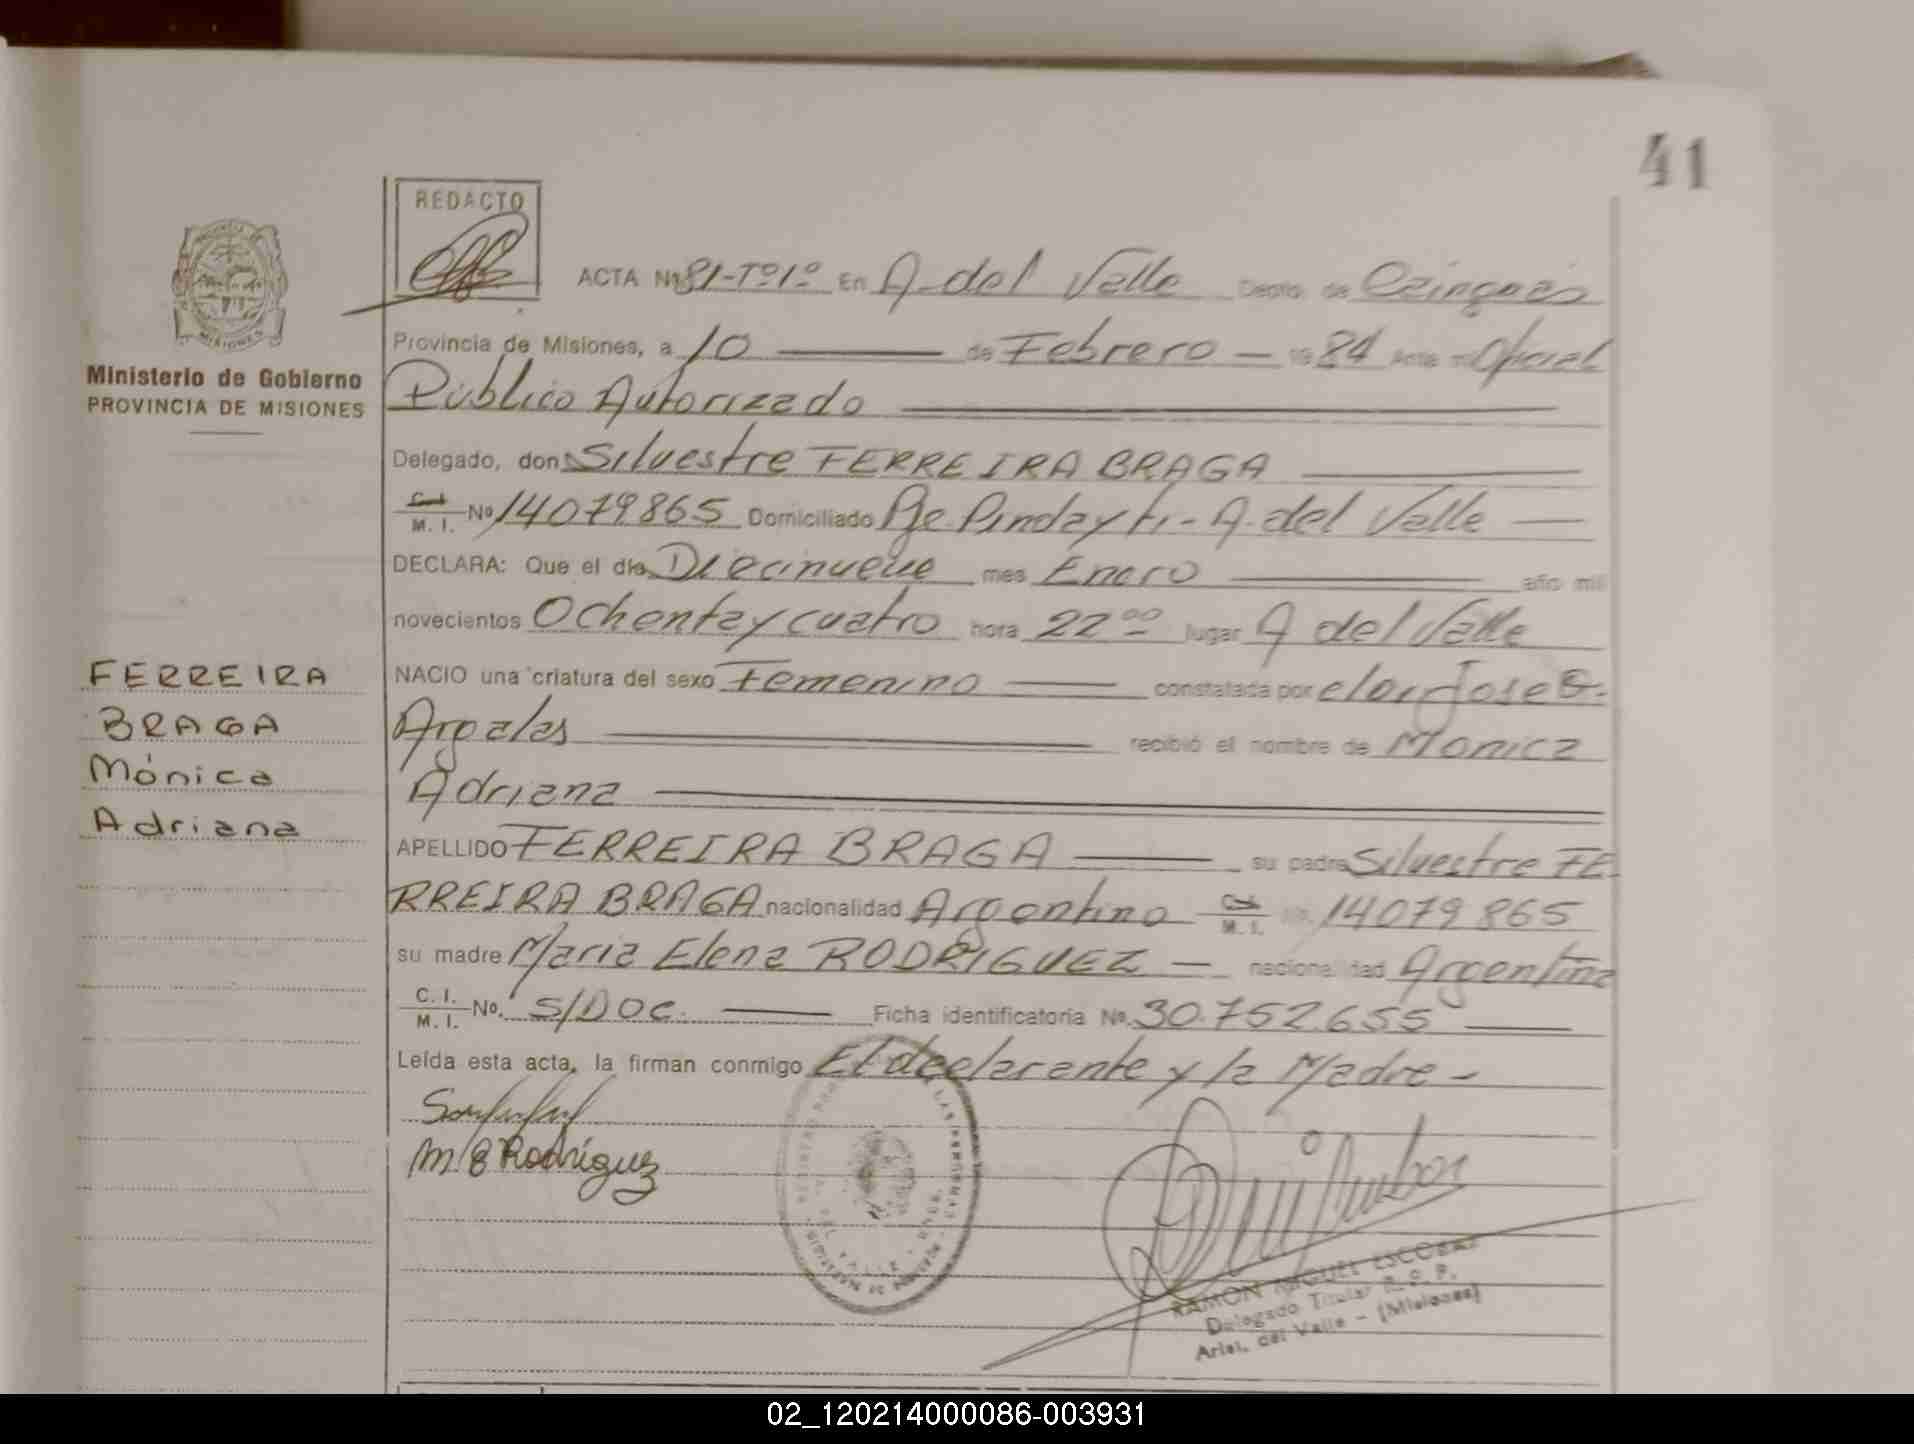 41
REDACTO
ACTA Nº 81-Tº1º En A. del Valle Depto. de Cainguás
Provincia de Misiones, a 10 de Febrero 1984 Ante mi Oficial
Público Autorizado
Ministerio de Gobierno
PROVINCIA DE MISIONES
Delegado, don Silvestre FERREIRA BRAGA
C. I. M. I. Nº 14079865 Domiciliado Pje. Pindayti - A. del Valle
DECLARA: Que el día Diecinueve mes Enero año mil
novecientos Ochenta y cuatro hora 22 00 lugar A del Valle
NACIO una criatura del sexo Femenino constatada por el Dr. Jose O.
recibió el nombre de Monica
Adriana
FERREIRA
BRAGA
Mónica
Adriana
APELLIDO FERREIRA BRAGA su padre Silvestre FE
RREIRA BRAGA nacionalidad Argentino C. I. M. I. No. 14079865
su madre Maria Elena RODRIGUEZ nacionalidad Argentina
C. I. M. I. No. S/DOC. Ficha identificatoria Nº 30.752.655
Leída esta acta, la firman conmigo El declarante y la Madre -
M E Rodríguez
RAMON MIGUEL ESCOBAR
Delegado Titular R. C. P.
Arist. del Valle - (Misiones)
02_120214000086-003931